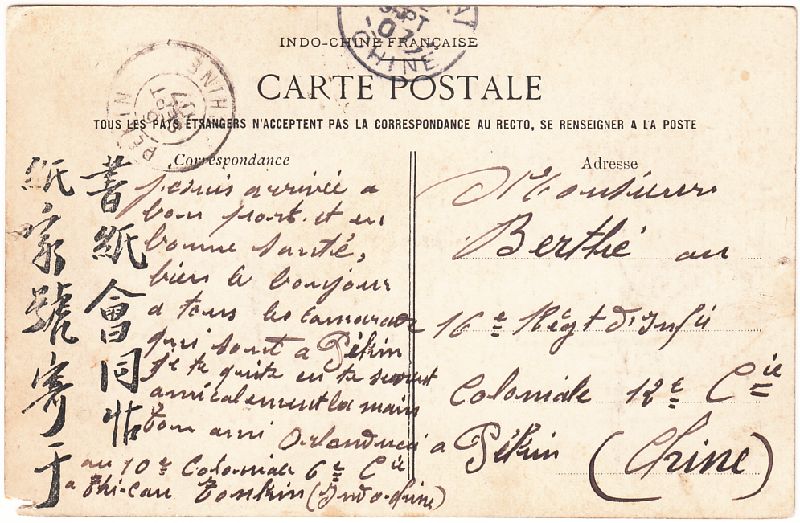 INDO-CHINE FRANÇAISE
CARTE POSTALE
TOUS LES PAYS ETRANGERS N'ACCEPTENT PAS LA CORRESPONDANCE AU RECTO, SE RENSEIGNER A LA POSTE
CHINE
PEKIN
CHINE
Correspondance
je suis arrivée a
bon port et en
bonne santé,
bien le bonjour
a tous les camarade
qui sont a Pékin
je te quite en te serrant
amicalement la main
ton ami Orlanducci
au 10e Coloniale 6e Cie
a Phi-Cau Tonkin (Indo-chine)
Adresse
Monsieur
Berthé au
16e Régt d'Infie
Coloniale 12e Cie
a Pékin
(Chine)
書紙會同
紙家號寄于